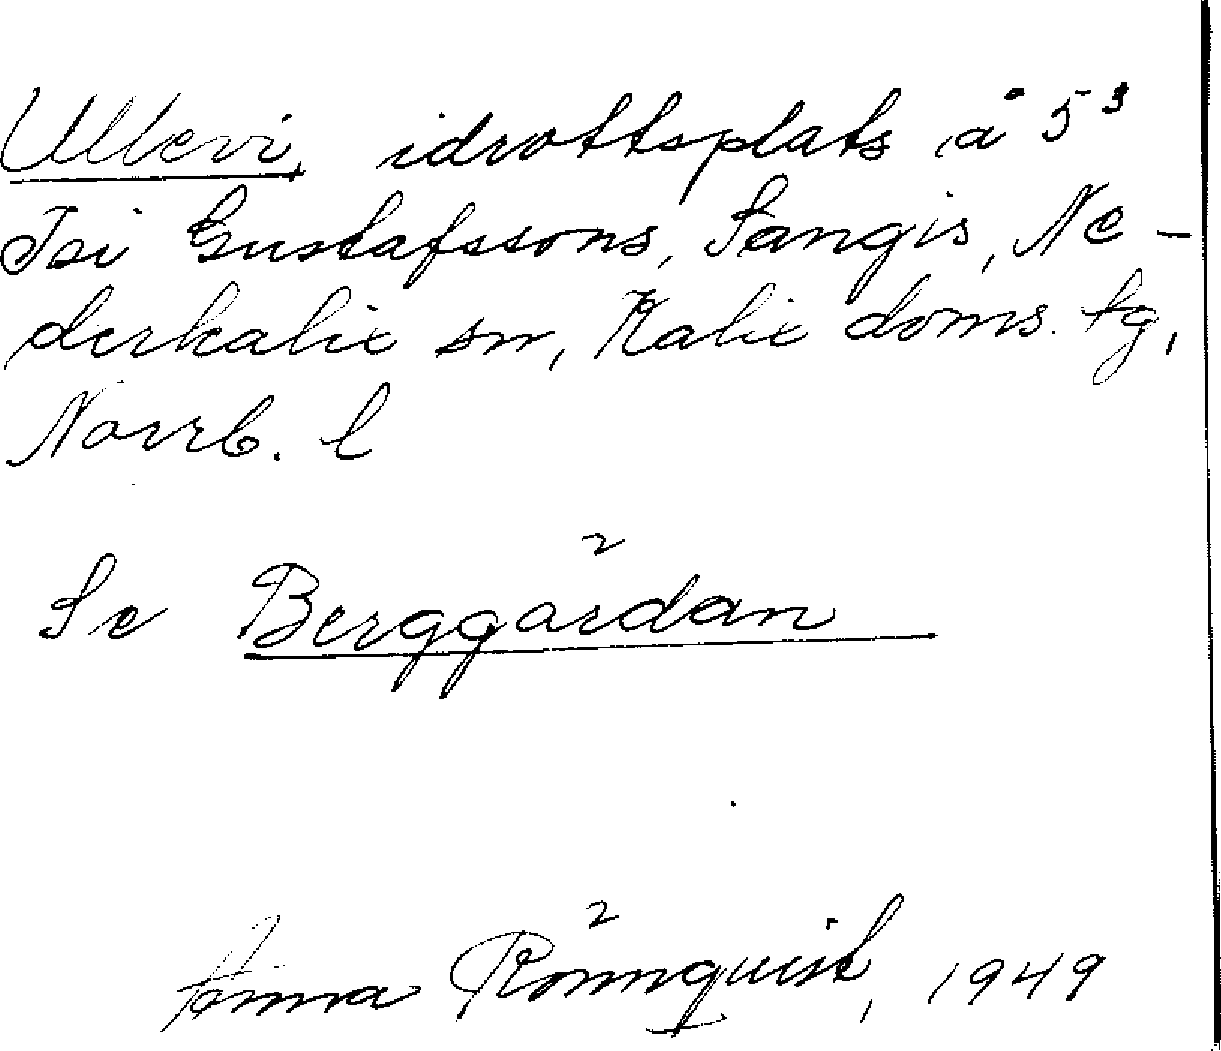 Ullevi, idrottsplats å 5³
Isi Gustafssons, Sangis, Ne-
derkalix sn, Kalix doms. tg,
Norrb. l
Se Berggårdan
Anna Rönnquist, 1949